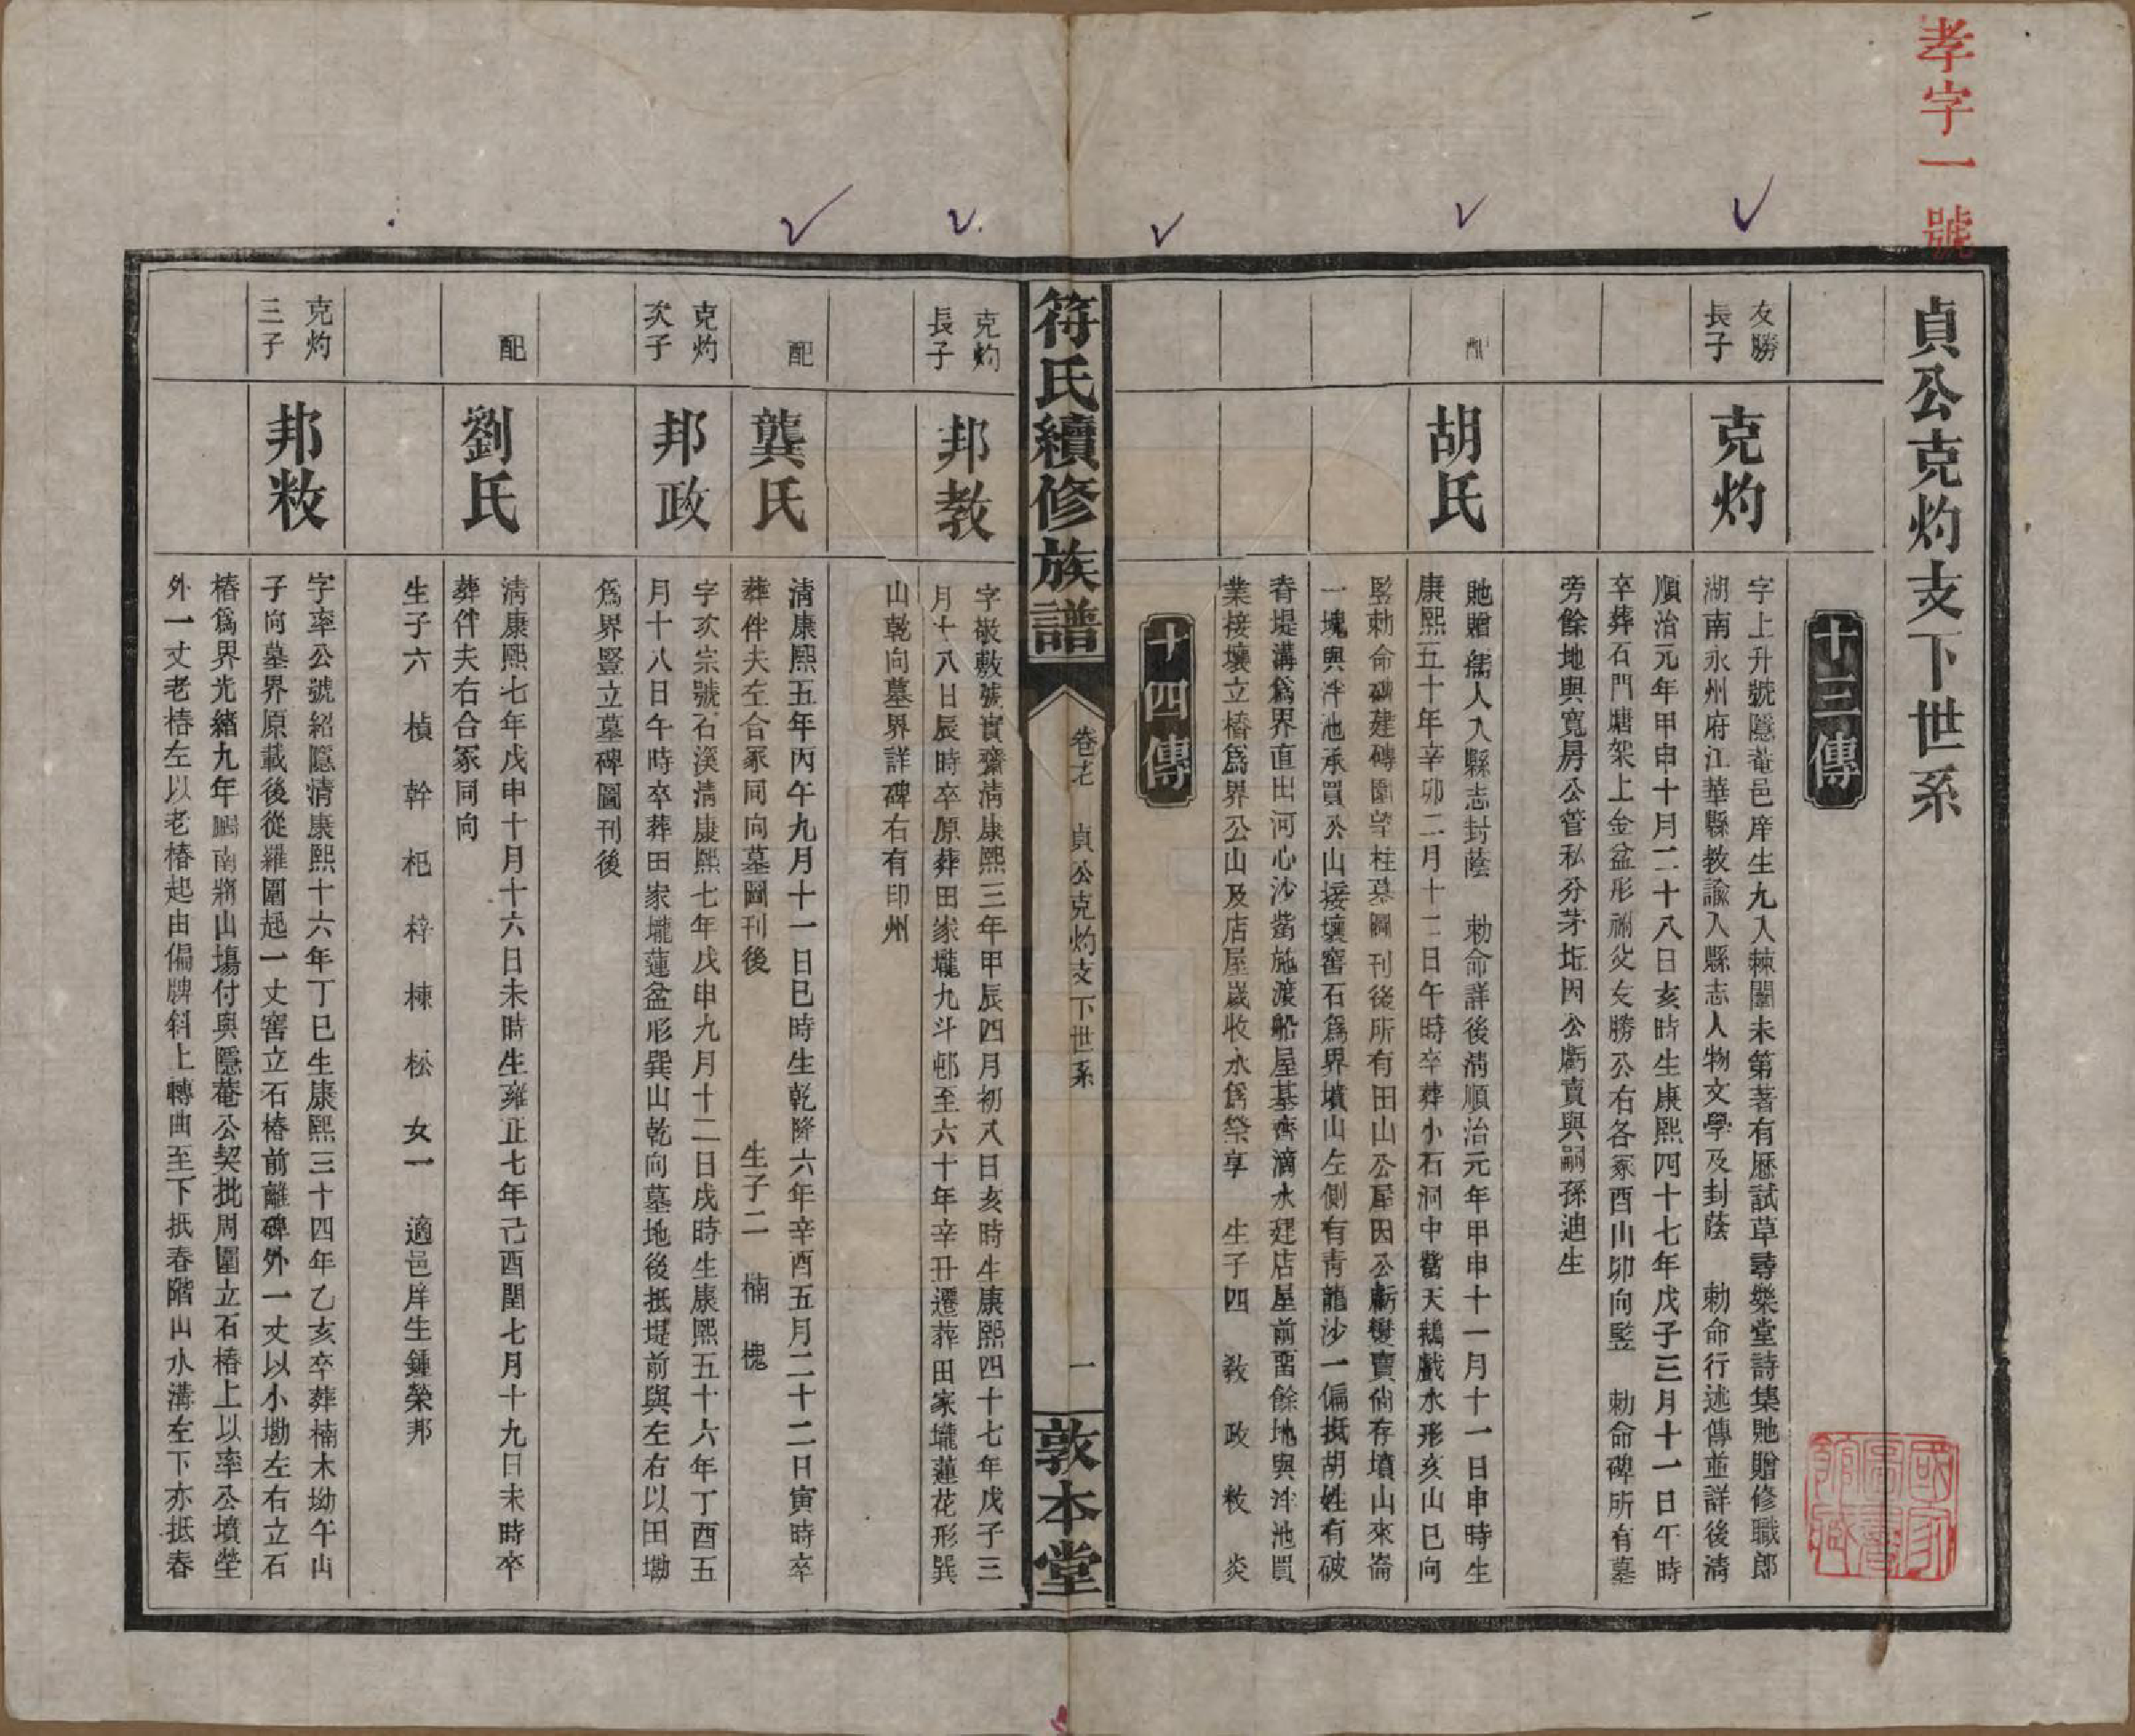 孝字一號
貞公克灼支下世系
十三傳
友勝
長子
克灼
字上升號隱菴邑庠生九入棘闈未第著有歷試草尋樂堂詩集貤贈修職郎
湖南永州府江華縣教諭入縣志人物文學及封蔭 勅命行述傳並詳後淸
順治元年甲申十月二十八日亥時生康熙四十七年戊子三月十一日午時
卒葬石門塘架上金盆形祔父友勝公右各冢酉山卯向竪 勅命碑所有墓
旁餘地與寬房公管私分茅坵因公虧賣與嗣孫迪生
配
胡氏
貤贈孺人入縣志封蔭 勅命詳後淸順治元年甲申十一月十一日申時生
康熙五十年辛卯二月十二日午時卒葬小石洞中嘴天鵝戲水形亥山巳向
竪勅命碑建磚圍望柱墓圖刊後所有田山公屋因公虧變賣尙存墳山來崙
一塊與泮池承買公山接壤窖石爲界墳山左側有靑龍沙一偏抵胡姓有破
脊堤溝爲界直出河心沙嘴施渡船屋基齊滴水建店屋前畱餘地與泮池買
業接壤立樁爲界公山及店屋歲收永爲祭享 生子四 教 政 敉 炎
十四傳
符氏續修族譜
貞公克灼支下世系
一
敦本堂
克灼
長子
邦教
字敬敷號實齋淸康熙三年甲辰四月初八日亥時生康熙四十七年戊子三
月十八日辰時卒原葬田家壠九斗邨至六十年辛丑遷葬田家壠蓮花形巽
山乾向墓界詳碑右有印州
配
龔氏
淸康熙五年丙午九月十一日巳時生乾隆六年辛酉五月二十二日寅時卒
葬伴夫左合冢同向墓圖刊後 生子二 楠 槐
克灼
次子
邦政
字次宗號石溪淸康熙七年戊申九月十二日戌時生康熙五十六年丁酉五
月十八日午時卒葬田家壠蓮盆形巽山乾向墓地後抵堤前與左右以田墈
爲界豎立墓碑圖刊後
配
劉氏
淸康熙七年戊申十月十六日未時生雍正七年己酉閏七月十九日未時卒
葬伴夫右合冢同向
生子六 楨 幹 杞 梓 棟 松 女一 適邑庠生鍾榮邦
克灼
三子
邦敉
字率公號紹隱淸康熙十六年丁巳生康熙三十四年乙亥卒葬楠木坳午山
子向墓界原載後從羅圍起一丈窖立石樁前離碑外一丈以小墈左右立石
樁爲界光緖九年鵬南將山塲付與隱菴公契批周圍立石樁上以率公墳塋
外一丈老樁左以老樁起由偏牌斜上轉曲至下抵春階山水溝左下亦抵春
國家圖書館藏